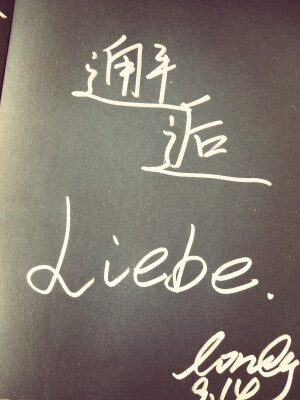 邂
逅
Liebe.
lonely
9.14